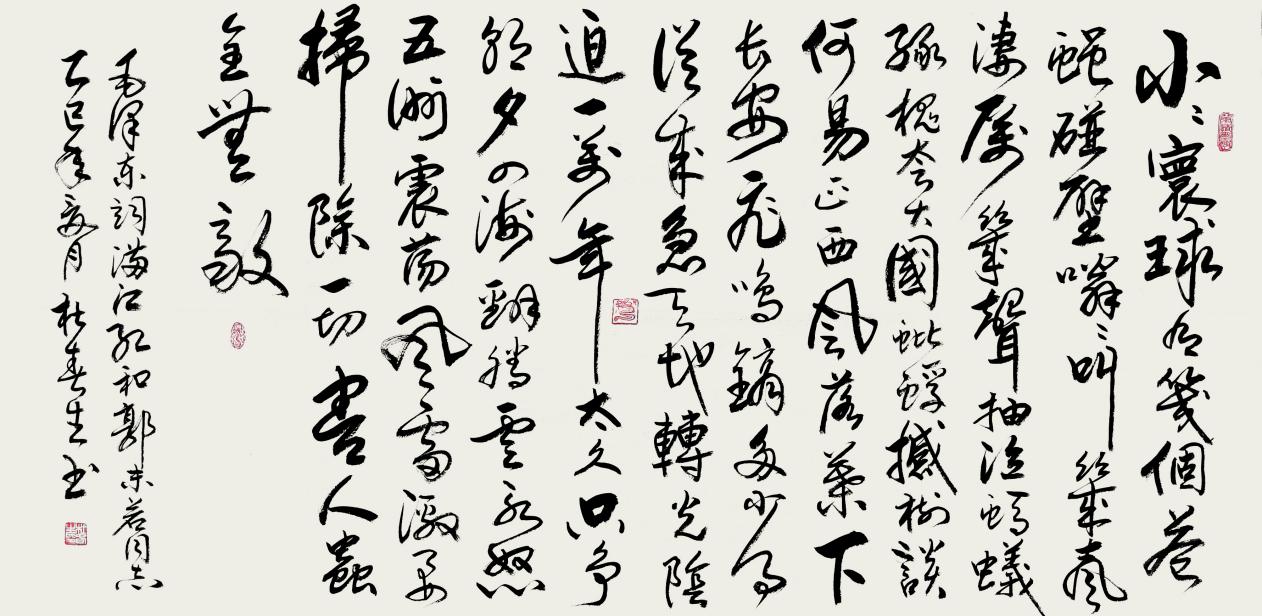 小〻寰球有幾個蒼
蠅碰壁嗡〻叫幾聲
凄厲幾聲抽泣螞蟻
緣槐夸大國蚍蜉撼樹談
何易正西風落葉下
長安飛鳴鏑多少事
從來急天地轉光陰
迫一萬年太久只爭
朝夕四海翻騰雲水怒
五洲震蕩風雷激要
掃除一切害人蟲
全無敵
毛澤東詞滿江紅和郭沫若同志
乙巳年夏月杜春生书